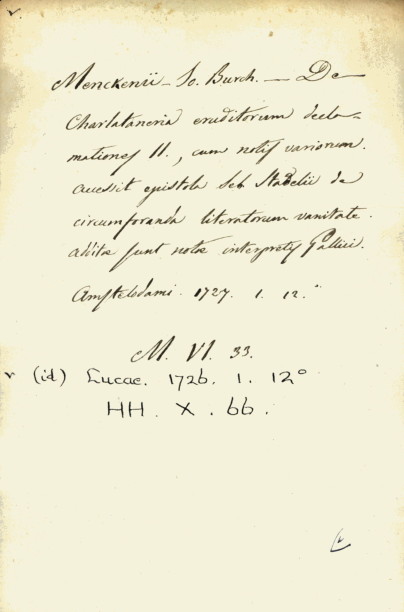 Menckenii - Jo. Burch. — De
Charlataneria eruditorum decla-
mationes II., cum notis variorum.
accessit epistola Seb. Stadelii de
circumforanea literatorum vanitate.
additae sunt notae interpretis Gallici.
Amstelodami. 1727. 1. 12.°
M. VI. 33.
v (id) Lucae. 1726. 1. 12°
HH. X. 66.